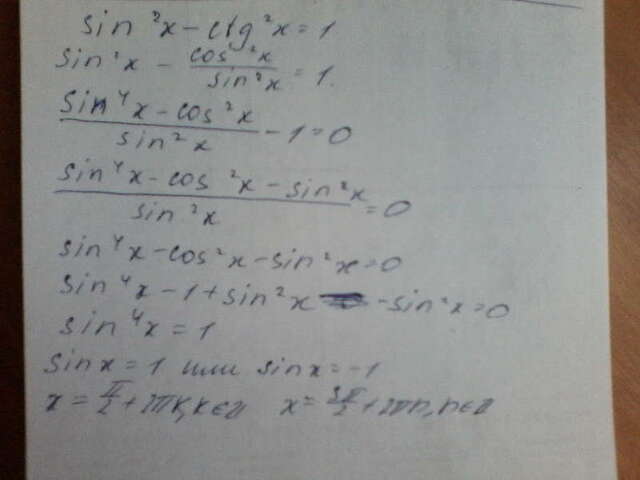 sin²x - ctg²x = 1
sin²x - cos²x / sin²x = 1.
(sin⁴x - cos²x) / sin²x - 1 = 0
(sin⁴x - cos²x - sin²x) / sin²x = 0
sin⁴x - cos²x - sin²x = 0
sin⁴x - 1 + sin²x - sin²x = 0
sin⁴x = 1
sinx = 1 или sinx = -1
x = π/2 + 2πk, k∈Z x = 3π/2 + 2πn, n∈Z